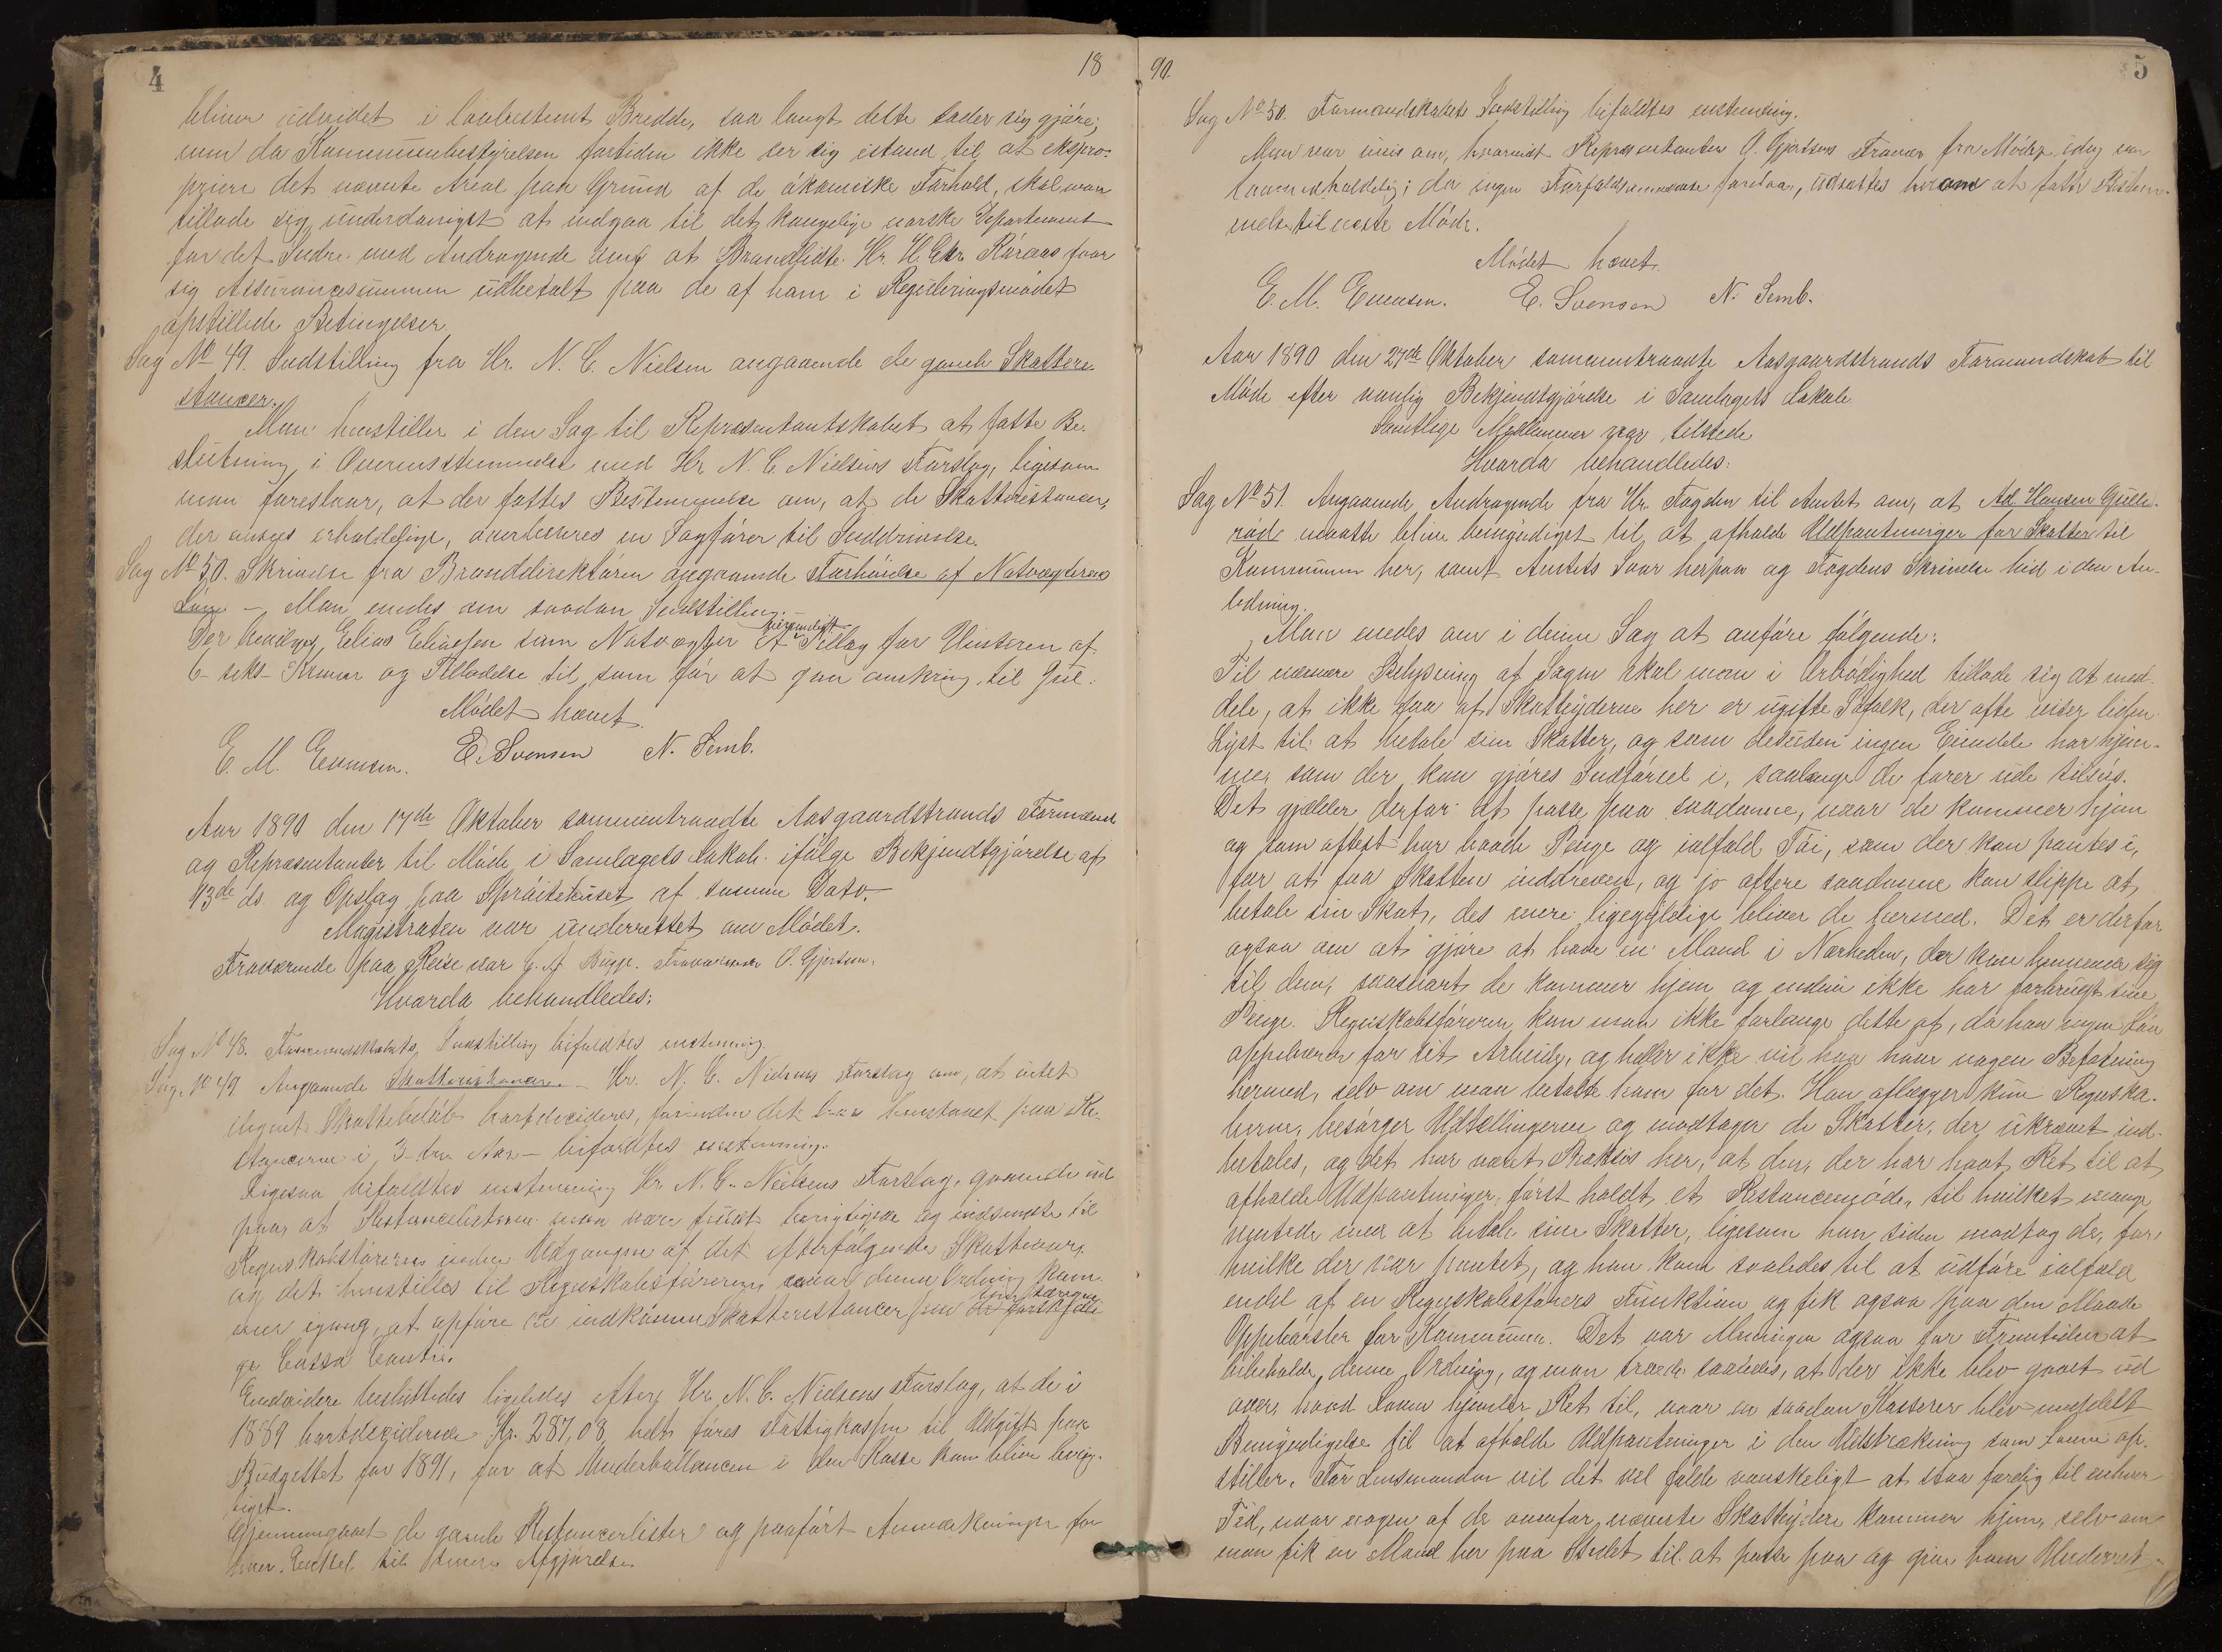 4
18
bliver udvidet i lovbestemt Bredde, saa langt dette lader sig gjøre;
men da Kommunebestyrelsen fortiden ikke ser sig istand til at ekspro-
priere det nævnte Areal paa Grund af de økonomiske Forhold, skal man
tillade sig underdanigst at indgaa til det kongelige norske Departement
for det Indre med Andragende om at Brandlidte Hr. H. Chr. faar
sig Assurancesummen udbetalt paa de af ham i Reguleringsmødet
opstillede Betingelser
Sag No 49. Indstilling fra Hr. N. C. Nielsen angaaende de gamle Skattere-
stancer.
Man henstiller i den Sag til Repræsentantskabet at fatte Be-
slutning i Overensstemmelse med Hr N. C. Nielsens Forslag, ligesom
man foreslaar, at der fattes Bestemmelse om, at de Skatterestancer,
der ansees erholdelige, overleveres en Sagfører til Inddrivelse.
Sag No 50. Skrivelse fra Branddirektøren angaaende Forhøielse af Natvægterens
Løn – Man enedes om saadan Indstilling:
Der bevilges Elias Eliassen som Natvægter et Tillæg for Vinteren af
6 – seks – Kroner og Tilladelse til som før at gaa omkring til Jul.
Mødet hævet.
E. M. Evensen. E. Svensen N. Semb.
Aar 1890 den 17de Oktober sammentraadte Aasgaardstrands Formænd
og Repræsentanter til Møde i Samlagets Lokale ifølge Bekjendtgjørelse af
13de ds. og Opslag paa Sprøitehuset af samme Dato.
Magistraten var underrettet om Mødet.
Fraværende paa Reise var Bugge. Fraværende O. Gjertsen.
Hvorda behandledes:
Sag No 48. Formandskabets Indstilling bifaldtes enstemmig.
Sag No 49 Angaaende Skatterestancer. – Hr. N. C. Nielsens Forslag om, at intet
ilignet Skattebeløb bortdecideres, forinden det har henstaaet paa Re-
stancerne i 3 – tre Aar – bifaldtes enstemmig.
Ligesaa bifaldtes enstemmig Hr. N. C. Nielsens Forslag, gaaende ud
paa, at Restancelisterne maa være fuldt berigtigede og indsendte til
Regnskabsføreren inden Udgangen af det efterfølgende Skatteaar,
og det henstilles til Regnskabsføreren, naar denne Ordning kom-
mer igang, at opføre de indkomne Skatterestancer paa de forskjelli-
ge Cassa Conti.
Endvidere besluttedes ligeledes efter Hr. N. C. Nielsens Forslag, at de i
1889 bortdeciderede Kr. 287,08 helt føres Fattigkassen til Udgift paa
Budgettet for 1891, for at Underballancen i den Kasse kan blive berig-
tiget.
Gjennemgaaet de gamle Restancelister og paaført Anmærkninger for
hver Enkelt til Afgjørelse.
90.
5
Sag No 50. Formandskabets Indstilling bifaldtes enstemmig.
Man var uvis om, hvorvidt Repræsentanten O. Gjertsens Fravær fra Mødet idag var
lovmedholdelig; da ingen forelaa, udsattes herom at fatte Bestem-
melse til næste Møde.
Mødet hævet.
E. M. Evensen. E. Svensen N. Semb.
Aar 1890 den 27de Oktober sammentraadte Aasgaardstrands Formandskab til
Møde efter vanlig Bekjendtgjørelse i Samlagets Lokale.
Samtlige Medlemmer var tilstede
Hvorda behandledes:
Sag No 51. Angaaende Andragende fra Hr. Fogden til Amtet om, at Ad. Hansen Gulle-
rød maatte blive bemyndiget til at afholde Udpantninger for Skatter til
Kommunen her, samt Amtets Svar herpaa og Fogdens Skrivelse hid i den An-
ledning.
Man enedes om i denne Sag at anføre følgende:
Til nærmere Belysning af Sagen skal man i Ærbødighed tillade sig at med-
dele, at ikke faa af Skatteyderne her er ugifte Søfolk, der ofte viser liden
Lyst til at betale sine Skatter, og som desuden ingen Eiendele har hjem-
me, som der kan gjøres Indførsel i, saalænge de farer ude tilsøs.
Det gjælder derfor at passe paa saadanne, naar de kommer hjem
og som oftest har baade Penge og ialfald Tøi, som der kan pantes i,
for at faa Skatten inddreven, og jo oftere saadanne kan slippe at
betale sin Skat, des mere ligegyldige bliver de hermed. Det er derfor
ogsaa om at gjøre at have en Mand i Nærheden, der kan henvende sig
til dem, saasnart de kommer hjem og endnu ikke har forbrugt sine
Penge. Regnskabsføreren kan man ikke forlange dette af, da han ingen Løn
oppebærer for sit Arbeide, og heller ikke vil han have nogen Befatning
hermed, selv om man betalte ham for det. Han aflægger kun Regnska-
berne, besørger Udtællingerne og modtager de Skatter, der ukrævet ind-
betales, og det har været Praksis her, at den, der har havt Ret til at
afholde Udpantninger, først holdt et Restancemøde, til hvilket mange
ventede med at betale sine Skatter, ligesom han siden modtog de, for
hvilke der var pantet, og han kom saaledes til at udføre ialfald
endel af en Regnskabsførers Funktion og fik ogsaa paa den Maade
Oppebørsler for Kommunen. Det var Meningen ogsaa for Fremtiden at
bibeholde denne Ordning, og man troede saaledes, at der ikke blev gaaet ud
over, hvad Loven hjemler Ret til, naar en saadan Kasserer blev meddelt
Bemyndigelse til at afholde Udpantninger i den Udstrækning som Loven op-
stiller. For Lensmanden vil det vel falde vanskeligt at staa færdig til enhver
Tid, naar nogen af de ovenfor nævnte Skatteydere kommer hjem, selv om
man fik en Mand her paa Stedet til at passe paa og give ham Underret-